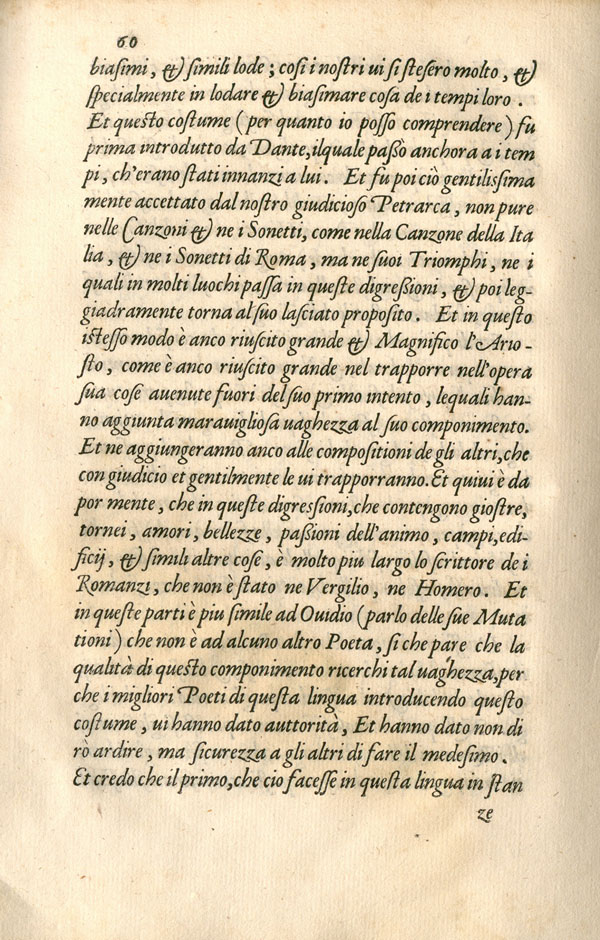 60
biasimi, & simili lode; cosi i nostri ui si stesero molto, &
specialmente in lodare & biasimare cosa de i tempi loro.
Et questo costume (per quanto io posso comprendere) fu
prima introdutto da Dante, ilquale passò anchora a i tem
pi, ch'erano stati innanzi a lui. Et fu poi ciò gentilissima
mente accettato dal nostro giudicioso Petrarca, non pure
nelle Canzoni & ne i Sonetti, come nella Canzone della Ita
lia, & ne i Sonetti di Roma, ma ne suoi Triomphi, ne i
quali in molti luochi passa in queste digressioni, & poi leg-
giadramente torna al suo lasciato proposito. Et in questo
istesso modo è anco riuscito grande & Magnifico l'Ario-
sto, come è anco riuscito grande nel trapporre nell'opera
sua cose auenute fuori del suo primo intento, lequali han-
no aggiunta marauigliosa uaghezza al suo componimento.
Et ne aggiungeranno anco alle compositioni de gli altri, che
con giudicio et gentilmente le ui trapporranno. Et quiui è da
por mente, che in queste digressioni, che contengono giostre,
tornei, amori, bellezze, passioni dell'animo, campi, edi-
ficij, & simili altre cose, è molto piu largo lo scrittore de i
Romanzi, che non è stato ne Vergilio, ne Homero. Et
in queste parti è piu simile ad Ouidio (parlo delle sue Muta
tioni) che non è ad alcuno altro Poeta, si che pare che la
qualità di questo componimento ricerchi tal uaghezza, per
che i migliori Poeti di questa lingua introducendo questo
costume, ui hanno dato auttorità, Et hanno dato non di
rò ardire, ma sicurezza a gli altri di fare il medesimo.
Et credo che il primo, che cio facesse in questa lingua in stan
ze